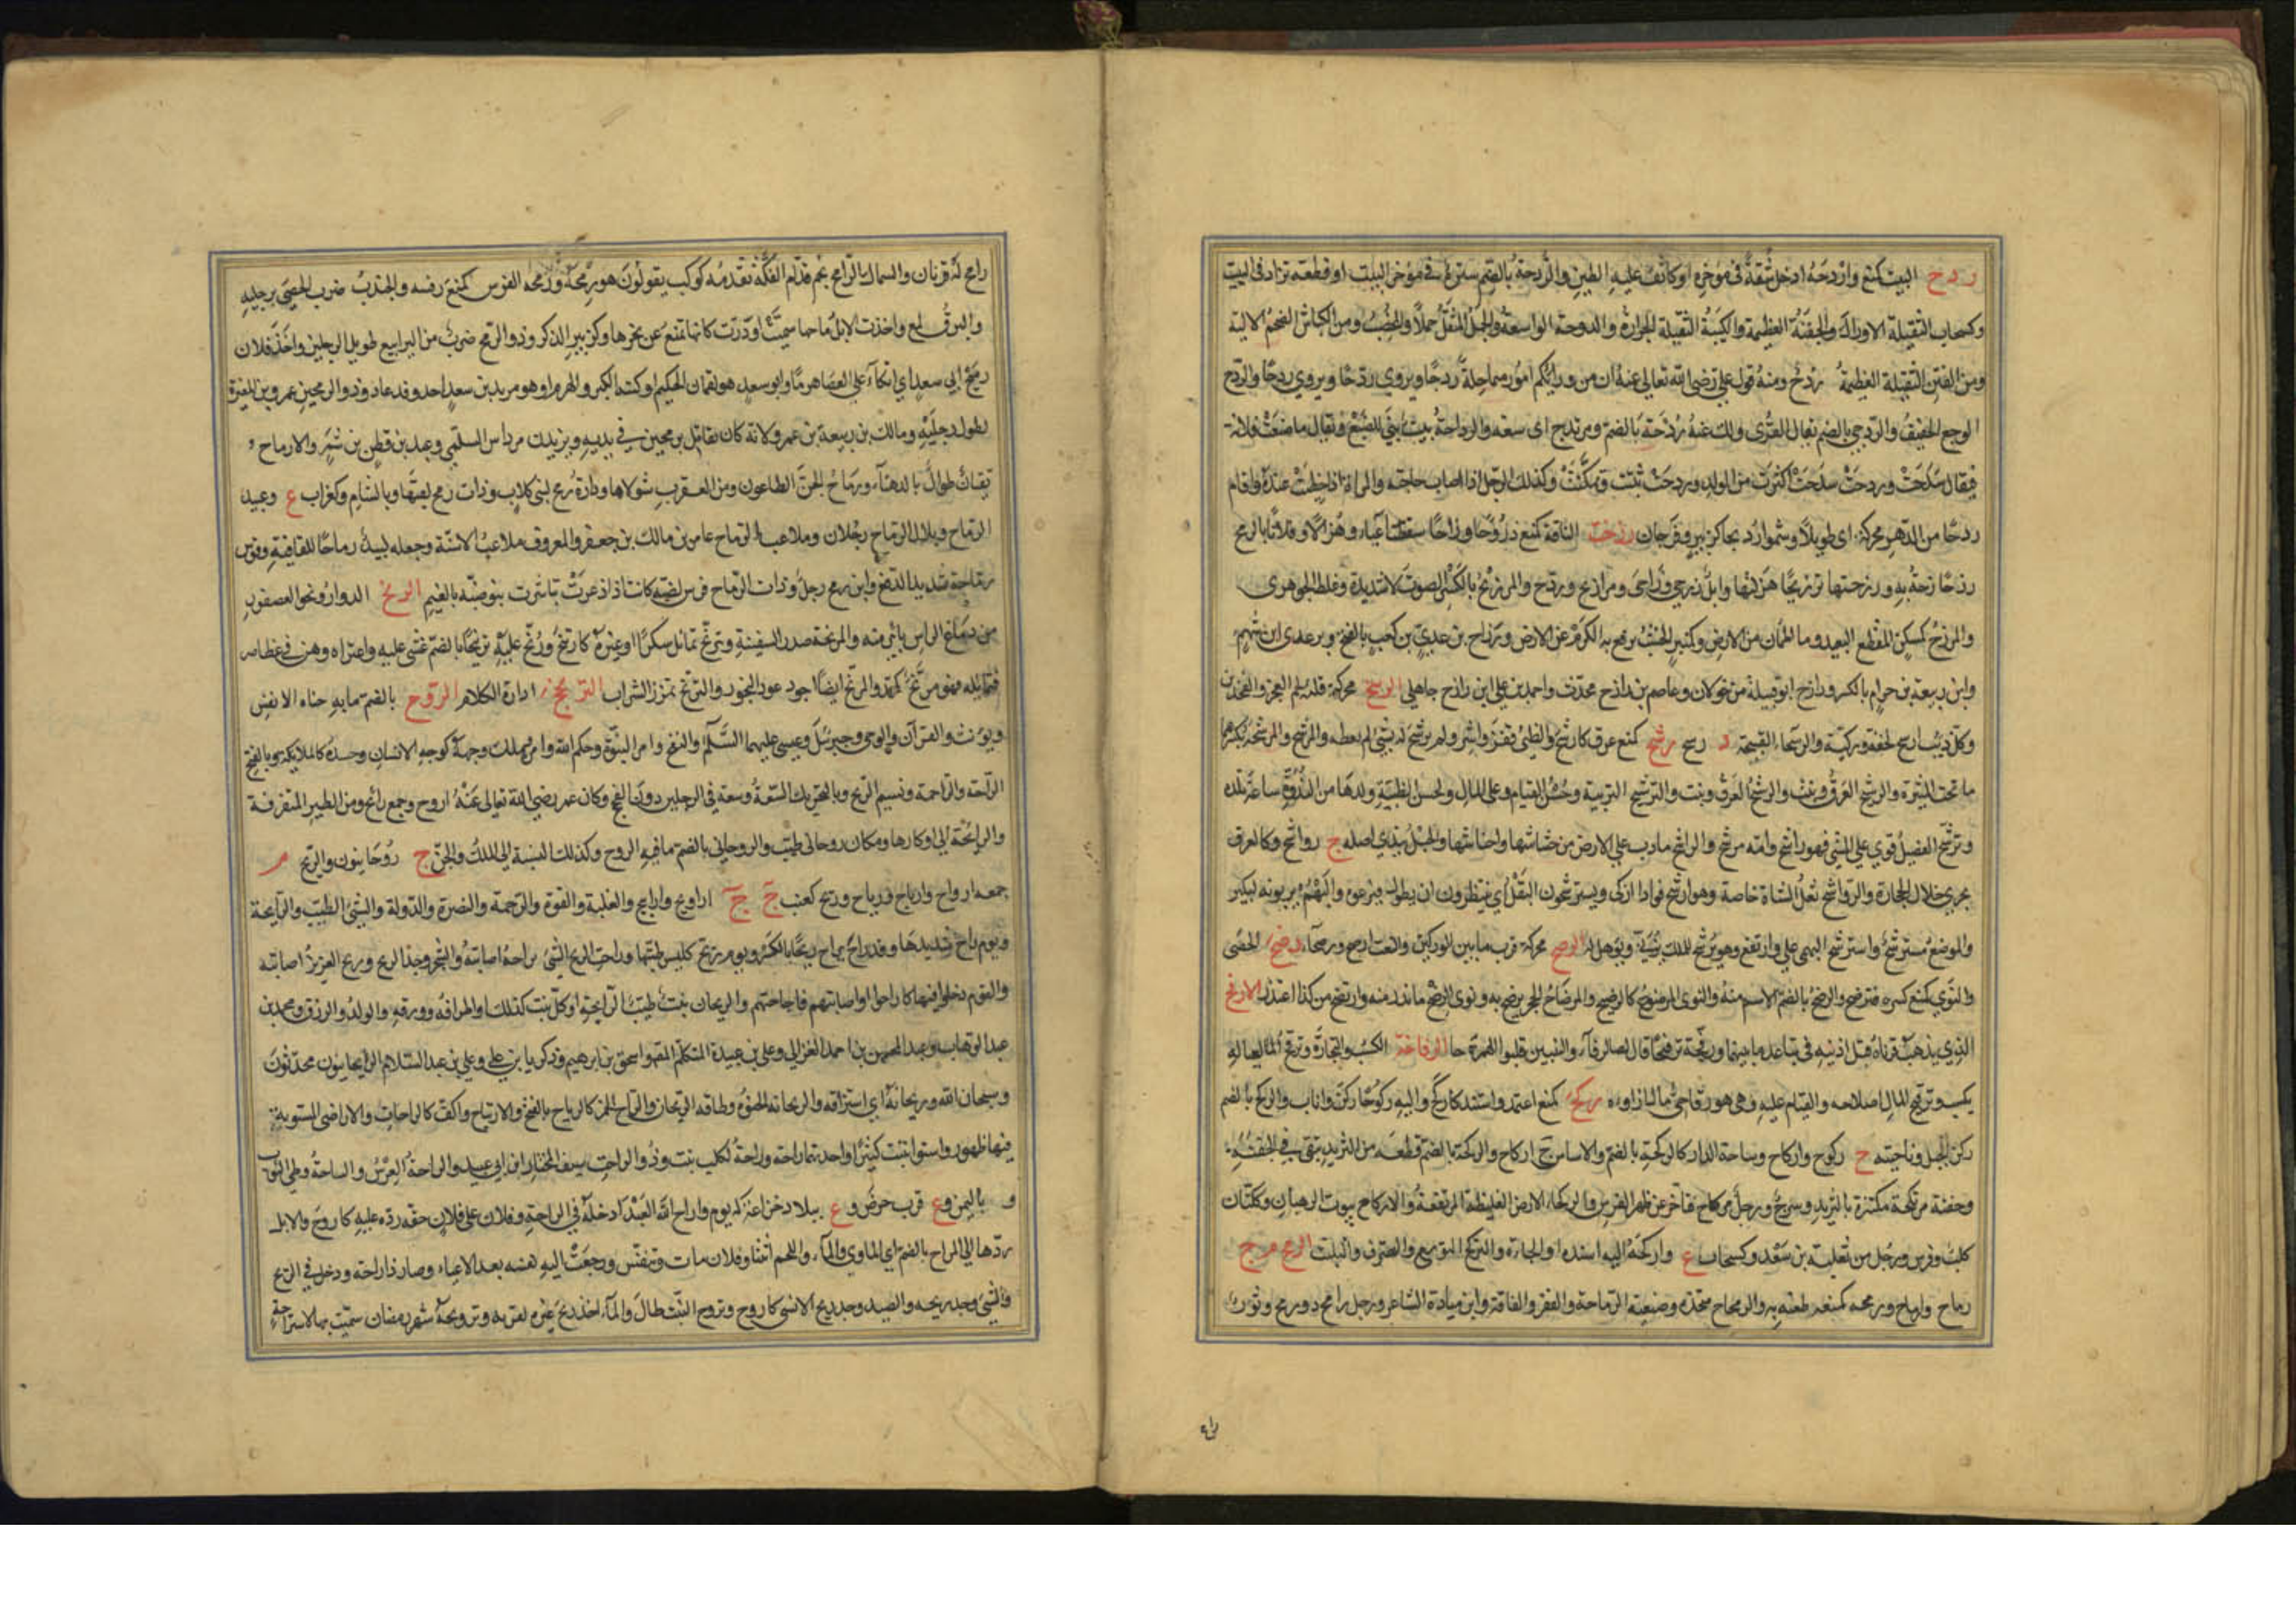 ردح البيت كمنع واردحه ادخل شقة في مؤخره او كاثف عليه الطين والردحة بالضم سترة في مؤخر البيت او قطعة تزاد في البيت
وكسحاب الثقيلة الاوراك والجفنة العظيمة والكتيبة الثقيلة الجرارة والدوحة الواسعة والجمل المثقل حملا والمخصب ومن الكباش الضخم الالية
ومن الفتن الثقيلة العظيمة ردح ومنه قول علي رضي الله تعالى عنه ان من ورائكم امورا متماحلة ردحا ويروى ردحا ويروى ردحا والردح
الوجع الخفيف والردحي بالضم بقال القرى ولك عنه ردحة بالضم ومرتدح اى سعة والرداحة بيت يبنى للضبع ويقال ما صنعت فلانة
فيقال سدحت وردحت سدحت اكثرت من الولد وردحت ثبتت وتمكنت وكذلك الرجل اذا اصاب حاجته والمراة اذا حظيت عنده واقام
ردحا من الدهر محركة اى طويلا وسموا رديحا كزبير وفرحان رزحت الناقة كمنع رزوحا ورزاحا سقطت اعياء وهزالا وفلانا بالرمح
رزحا زجه به ورزحتها ترزيحا هزلتها وابل رزحى ورزاحى ومرازيح ورزح والمرزيح بالكسر الصوت لا شديده وغلط الجوهرى
والمرزح كمسكن المقطع البعيد وما اطمان من الارض وكمنبر الخشب يرفع به الكرم عن الارض ورزاح بن عدي بن كعب بالفتح وبر عدى ابن سهم
وابن ربيعة بن حرام بالكسر ورازح ابو قبيلة من خولان وعاصم بن رازح محدث واحمد بن علي ابن رازح جاهلي الرسح محركة قلة لحم العجز والفخذين
وكل ذئب ارسح لخفة وركيه والرسحاء القبيحة د رسح رشح كمنع عرق كارشح والظبي قفز واشر ولم يرشح له بشيء لم يعطه والمرشح والمرشحة بكسرهما
ما تحت الميثرة والرشيح العرق ونبت والرشح العرق ونبت والترشيح التربية وحسن القيام وعلى المال ولحس الظبية ولدها من الندوة ساعة تلده
وترشح الفصيل قوي على المشي فهو راشح وامه مرشح والراشح ما دب على الارض من خشاشها واحناشها والجبل يندى اصله ج رواشح وكالعرق
يجري خلال الحجارة والرواشح ثعل الشاة خاصة وهو ارشح فوادا اذكى ويسترشحون البقل اي ينتظرون ان يطول فيرعوه والبهم يربونه ليكبر
والموضع مسترشح واسترشح البهمى علي وارتفع وهو يرشح للملك يربى ويؤهل له الرصح محركة قرب ما بين الوركين والنعت ارصح ورصحاء رضح الحصى
والنوى كمنع كسره فترضح والرضح بالضم الاسم منه والنوى المرضوح كالرضيح والمرضاح الحجر يرضح به ونوى الرضح ما ندر منه وارتضح من كذا اعتذر الارفح
الذي يذهب قرناه قبل اذنيه في تباعد ما بينهما ورفحه ترفيحا قال له بالرفاء والبنين قلبوا الهمزة حا الرقاحة الكسب والتجارة وترقح لعياله
يكسب وترقيح المال اصلاحه والقيام عليه وهو رقاحي مال ازاوه ركح كمنع اعتمد واستند كاركح واليه ركوحا ركن واناب والركح بالضم
ركن الجبل وناحيته ج ركوح واركاح وساحة الدار كالركحة بالضم والاساس ج اركاح والركحة بالضم قطعة من الثريد تبقى في الجفنة
وجفنة مرتكحة مكتنزة بالثريد وسرج ورحل مركاح يتاخر عن ظهر الفرس والركحاء الارض الغليظة المرتفعة والاركاح بيوت الرهبان وككتان
كلب وفرس ورجل من ثعلبة بن سعد وكسحاب ع واركحه اليه اسنده او الجاه والتركح التوسع والتصرف والتلبث الرمح م ج
رماح وارماح ورمحه كمنعه طعنه به والرماح متخذه وصنعته الرماحة والفقر والفاقة وابن ميادة الشاعر ورجل رامح ذو رمح وثور
رامح له قرنان والسماك الرامح نجم قدام الفكة تقدمه كوكب يقولون هو رمحه ورمحه الفرس كمنع رفسه والجندب ضرب الحصى برجليه
والبرق لمع واخذت الابل رماحها سمنت او درت كانها تمنع عن نحرها وكزبير الذكر وذو الرميح ضرب من اليرابيع طويل الرجلين واخذ فلان
رميح ابي سعد اي اتكا على العصا هرما وابو سعد هو لقمان الحكيم او كنية الكبر والهرم او هو مرثد بن سعد احد وفد عاد وذو الرمحين عمرو بن المغيرة
لطول رجليه ومالك بن ربيعة بن عمرو لانه كان يقاتل برمحين في يديه ويزيد بن مرداس السلمي وعبد بن قطن بن شمر والارماح
نقيان طوال بالدهناء ورماح الجن الطاعون ومن العقرب شولاها ودارة رمح لبني كلاب وذات رمح لقبها وبالشام وكغراب ع وعبيد
الرماح وبلال الرماح رجلان وملاعب الرماح عامر بن مالك بن جعفر والمعروف ملاعب الاسنة وجعله لبيد رماحا للقافية وقوس
رماحة شديدة الدفع وابن رمح رجل وذات الرماح فرس لضبة كانت اذا ذعرت تباشرت بنو ضبة بالغنم الرنح الدوار ونحو العصفور
من دماغ الراس بائن منه والمرنحة صدر السفينة وترنح تمايل سكرا او غيره كارتنح ورنح عليه ترنيحا بالضم غشي عليه واعتراه وهن في عظامه
فتمايل وهو مرنح كمعظم والمرنح ايضا اجود عود البخور والترنح تمزز الشراب الترنحز ادارة الكلام الروح بالضم ما به حياة الانفس
ويؤنث والقرآن والوحي وجبرئيل وعيسى عليهما السلام والنفخ وامر النبوة وحكم الله وامره وملك وجهه كوجه الانسان وجسده كالملائكة وبالفتح
الراحة والرحمة ونسيم الريح وبالتحريك السعة وسعة في الرجلين دون الفحج وكان عمر رضي الله تعالى عنه اروح وجمع رائح ومن الطير المتفرقة
والرائحة الى اوكارها ومكان روحاني طيب والروحاني بالضم ما فيه الروح وكذلك النسبة الى الملك والجن ج روحانيون والريح م
جمعه ارواح وارياح ورياح وريح كعنب جج اراويح واراييح والغلبة والقوة والرحمة والنصرة والدولة والشيء الطيب والرائحة
ويوم راح شديدها وقد راح يراح ريحا بالكسر ويوم ريح ككيس طيبها وراحت الريح الشيء تراحه اصابته والشجر وجد الريح وريح الغدير اصابته
والقوم دخلوا فيها كاراحوا او اصابتهم فاجاحتهم والريحان نبت طيب الرائحة او كل نبت كذلك او اطرافه وورقه والولد والرزق ومحمد بن
عبد الوهاب وعبد المحسن بن احمد الغزالي وعلي بن عبيدة المتكلم المصنف واسحق بن ابرهيم وزكريا بن علي وعلي بن عبد السلام الريحانيون محدثون
وسبحان الله وريحانه اي استرزاقه والريحانة الحنوة وطاقة الريحان والراح الخمر كالرياح بالفتح والارتياح والاكف كالراحات والاراضي المستوية
فيها ظهور واستواء تنبت كثيرا واحدتهما راحة وراحة الكلب نبت وذو الراحة سيف المختار ابن ابي عبيد والراحة العرس والساحة وطي الثوب
و باليمن و ع قرب حرض و ع ببلاد خزاعة له يوم واراح الله العبد ادخله في الراحة وفلان على فلان حقه رده عليه كاروح والابل
ردها الى المراح بالضم اي الماوى والماء واللحم انتنا وفلان مات وتنفس ورجعت اليه نفسه بعد الاعياء وصار ذا راحة ودخل في الريح
والشيء وجد ريحه والصيد وجد ريح الانسي كاروح وتروح النبت طال والماء اخذ ريح غيره لقربه وترويحة شهر رمضان سميت بها لاستراحة